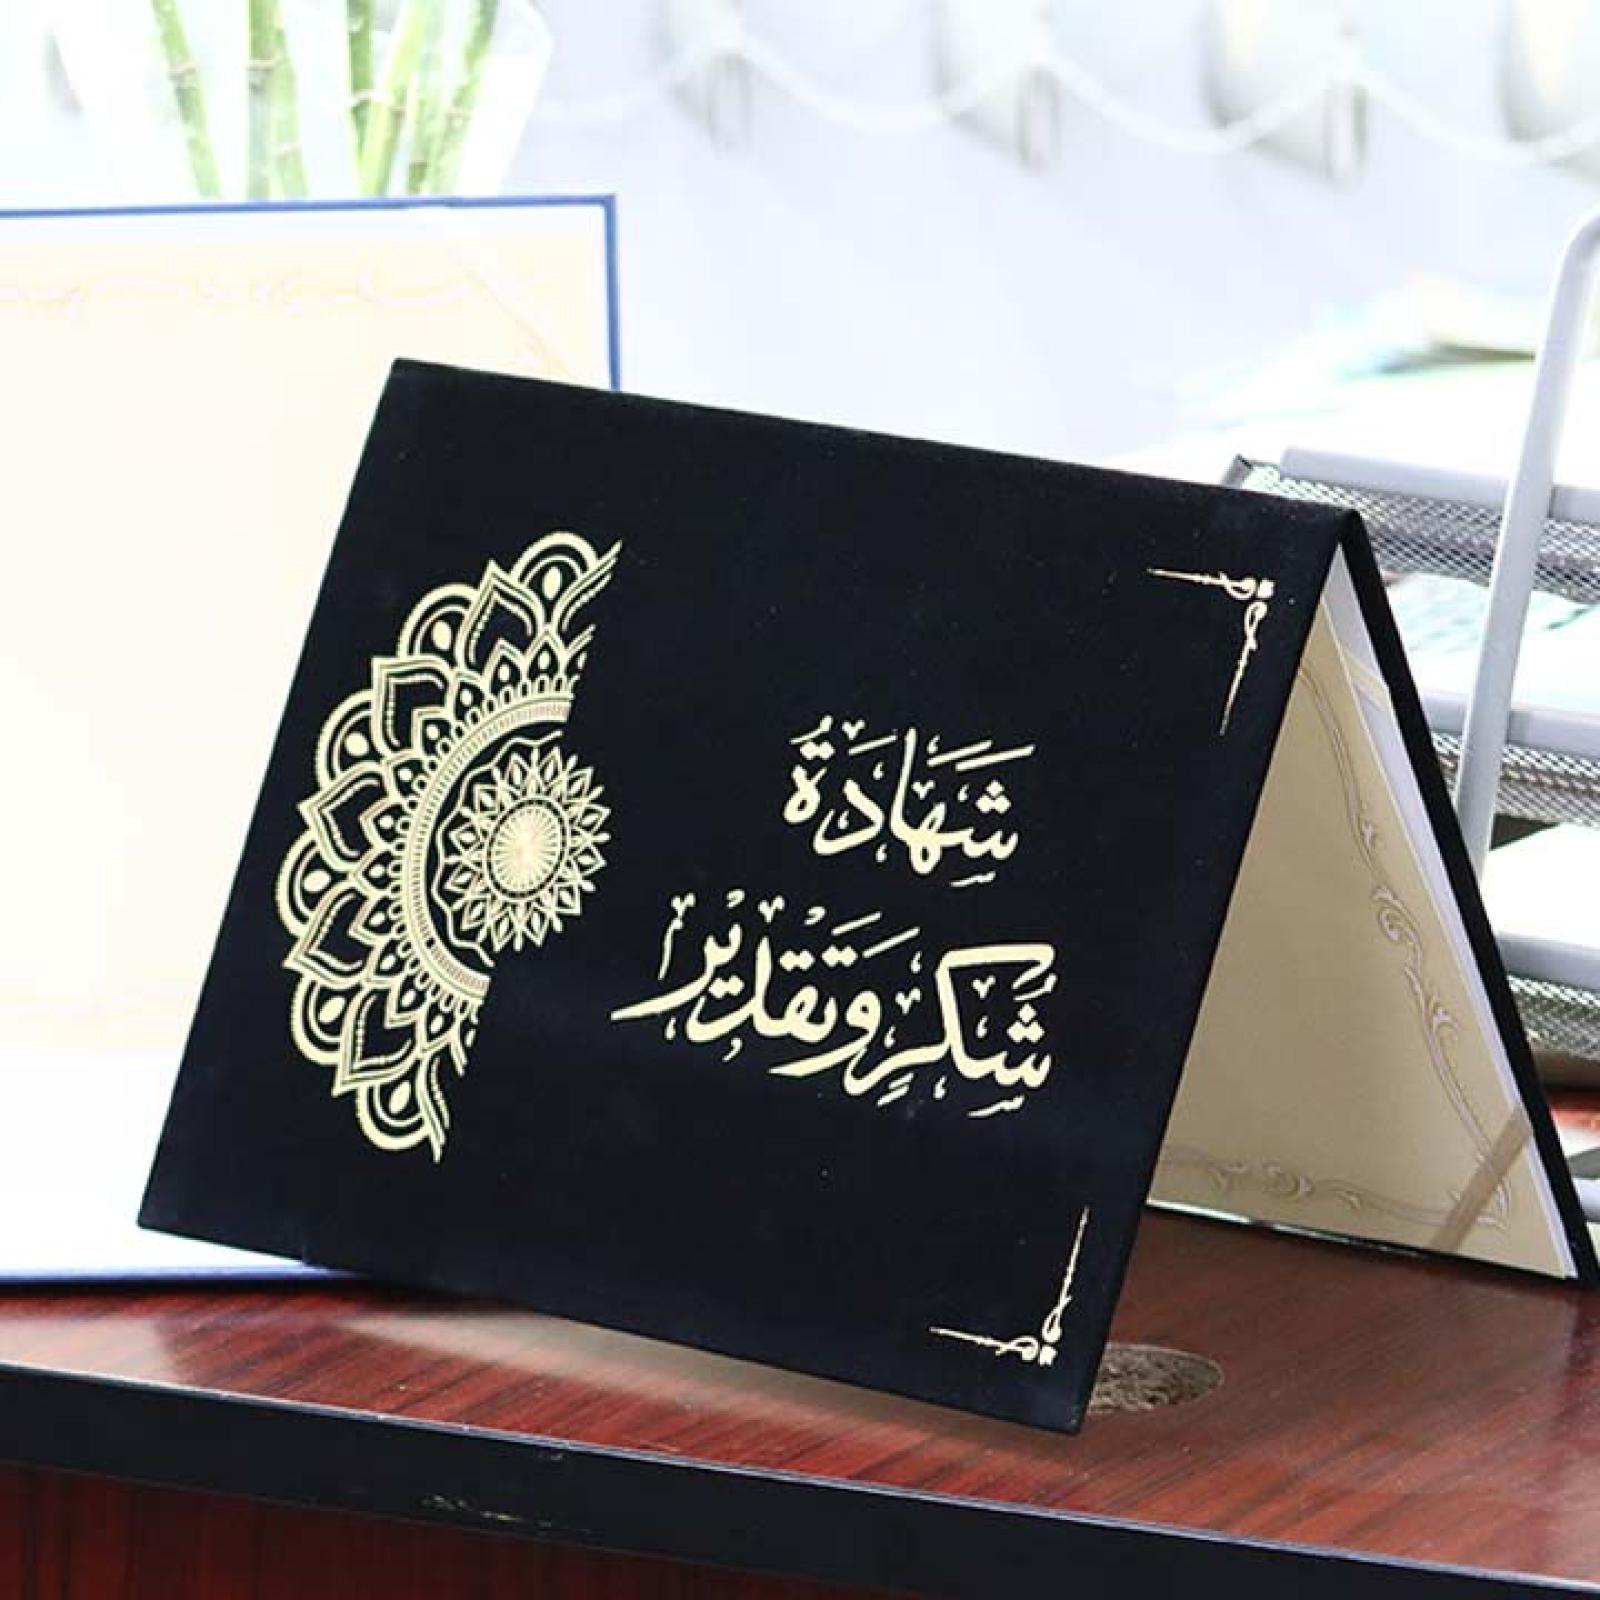 شَهَادَةُ
شُكرٍ وَتَقديرٍ